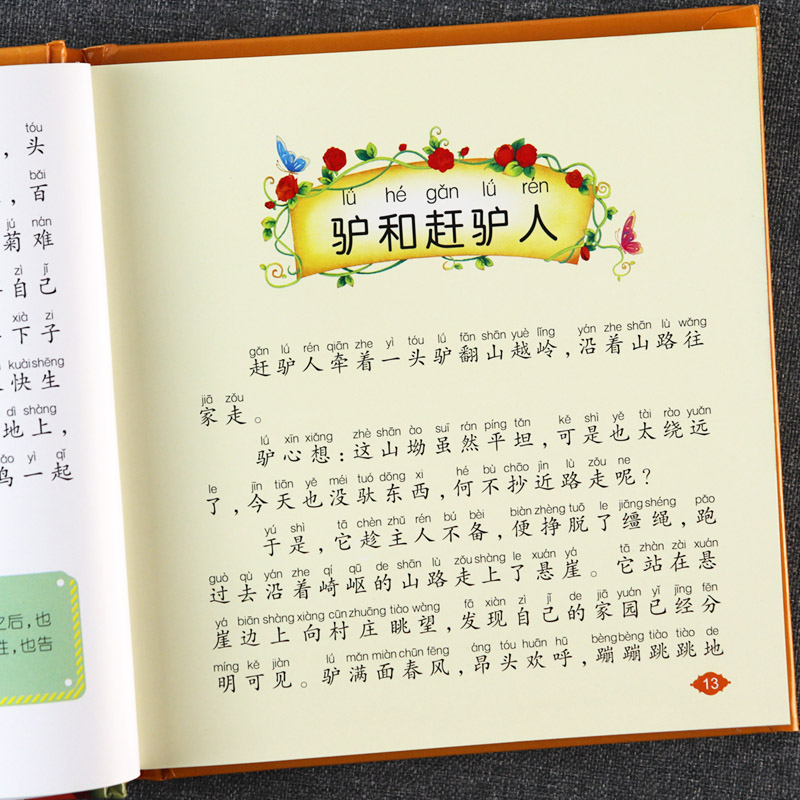 tóu
，头
bǎi
，百
jú nán
菊难
zì jǐ
自己
xià zi
下子
kuài shēng
快生
dì shàng
地上，
yì qǐ
鸟一起
之后，也
生，也告
lǘ hé gǎn lǘ rén
驴和赶驴人
gǎn lǘ rén qiān zhe yì tóu lǘ fān shān yuè lǐng yán zhe shān lù wǎng
赶驴人牵着一头驴翻山越岭，沿着山路往
jiā zǒu
家走。
lǘ xīn xiǎng zhè shān ào suī rán píng tǎn kě shì yě tài rào yuǎn
驴心想：这山坳虽然平坦，可是也太绕远
le jīn tiān yě méi tuó dōng xi hé bù chāo jìn lù zǒu ne
了，今天也没驮东西，何不抄近路走呢？
yú shì tā chèn zhǔ rén bú bèi biàn zhèng tuō le jiāng shéng pǎo
于是，它趁主人不备，便挣脱了缰绳，跑
guò qù yán zhe qí qū de shān lù zǒu shàng le xuán yá tā zhàn zài xuán
过去沿着崎岖的山路走上了悬崖。它站在悬
yá biān shàng xiàng cūn zhuāng tiào wàng fā xiàn zì jǐ de jiā yuán yǐ jīng fēn
崖边上向村庄眺望，发现自己的家园已经分
míng kě jiàn lǘ mǎn miàn chūn fēng áng tóu huān hū bèng bèng tiào tiào de
明可见。驴满面春风，昂头欢呼，蹦蹦跳跳地
13